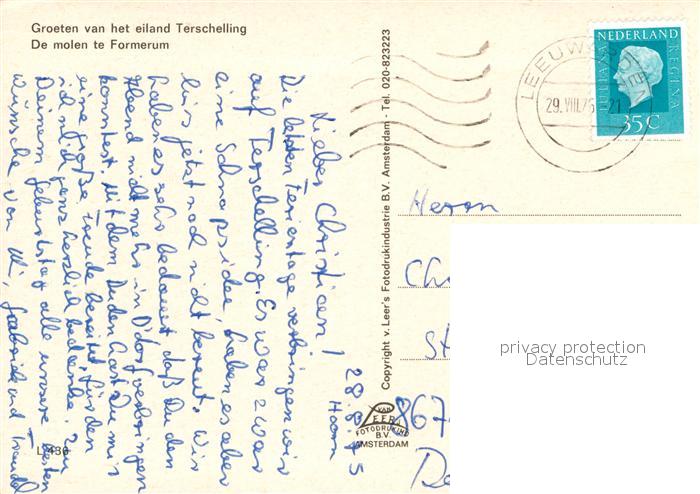 Groeten van het eiland Terschelling
De molen te Formerum
28.8.75
Hoorn
Lieber Christian!
Die letzten Ferientage verbringen wir
auf Terschelling. Es war zwar
eine Schnapsidee, haben es aber
bis jetzt noch nicht bereut. Wir
haben es sehr bedauert, daß Du den
Abend nicht mehr in D'dorf verbringen
konntest. Mit dem Duden hast Du mir
eine große Freude bereitet, für den
ich mich ganz herzlich bedanke. Zu
Deinem Geburtstag alle unsere besten
Wünsche von Gabriele und
L 430
Copyright v. Leer's Fotodrukindustrie B.V. Amsterdam - Tel. 020-823223
VAN LEER
FOTODRUKIND
B.V.
AMSTERDAM
LEEUWARDEN
29.VIII.75 21
NEDERLAND
JULIANA REGINA
35 C
Herrn
Ch
St
867
privacy protection
Datenschutz